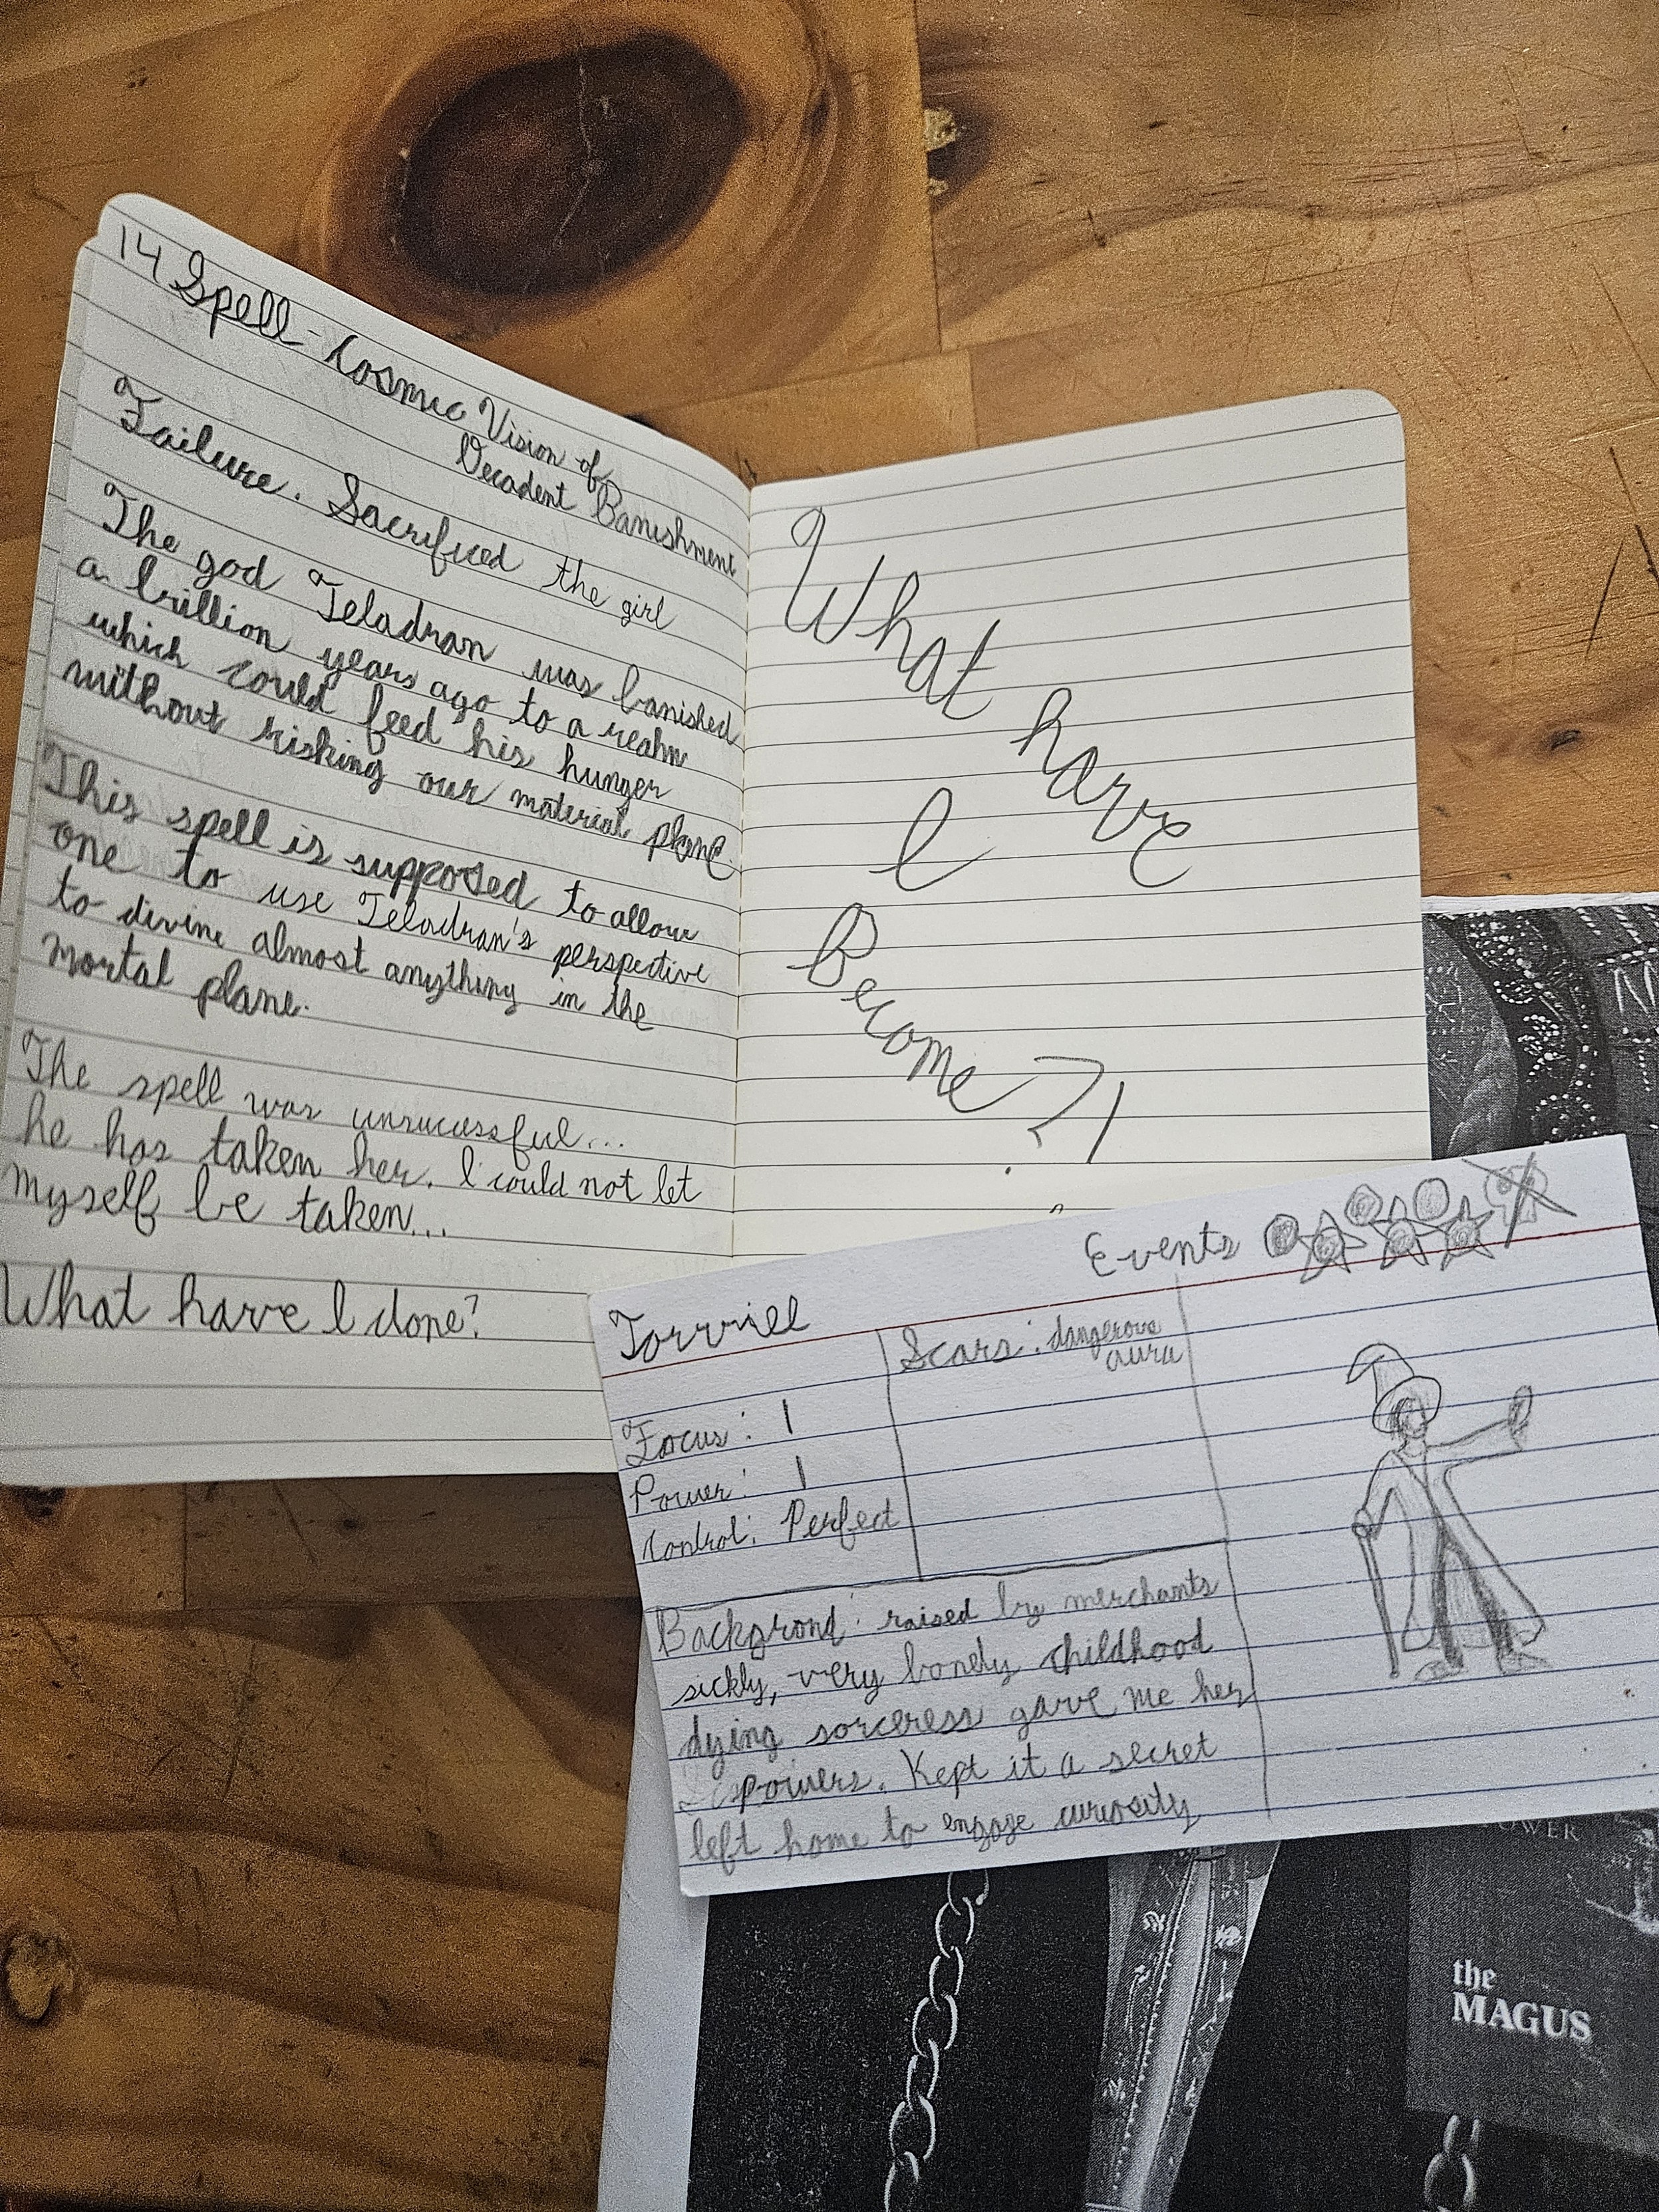 14 Spell - Cosmic Vision of
Decadent Banishment
Failure. Sacrificed the girl
The god Teladran was banished
a brillion years ago to a realm
which could feed his hunger
without risking our material plane.
This spell is supposed to allow
one to use Teladran's perspective
to divine almost anything in the
mortal plane.
The spell was unsuccessful...
he has taken her. I could not let
myself be taken...
What have I done?
What have
I
Become?!
Events
Torrviel
Scars: dangerous
aura
Focus: 1
Power: 1
Control: Perfect
Backgrond: raised by merchants
sickly, very lonely childhood
dying sorceress gave me her
powers. Kept it a secret
left home to engage curiosity
OWER
the
MAGUS